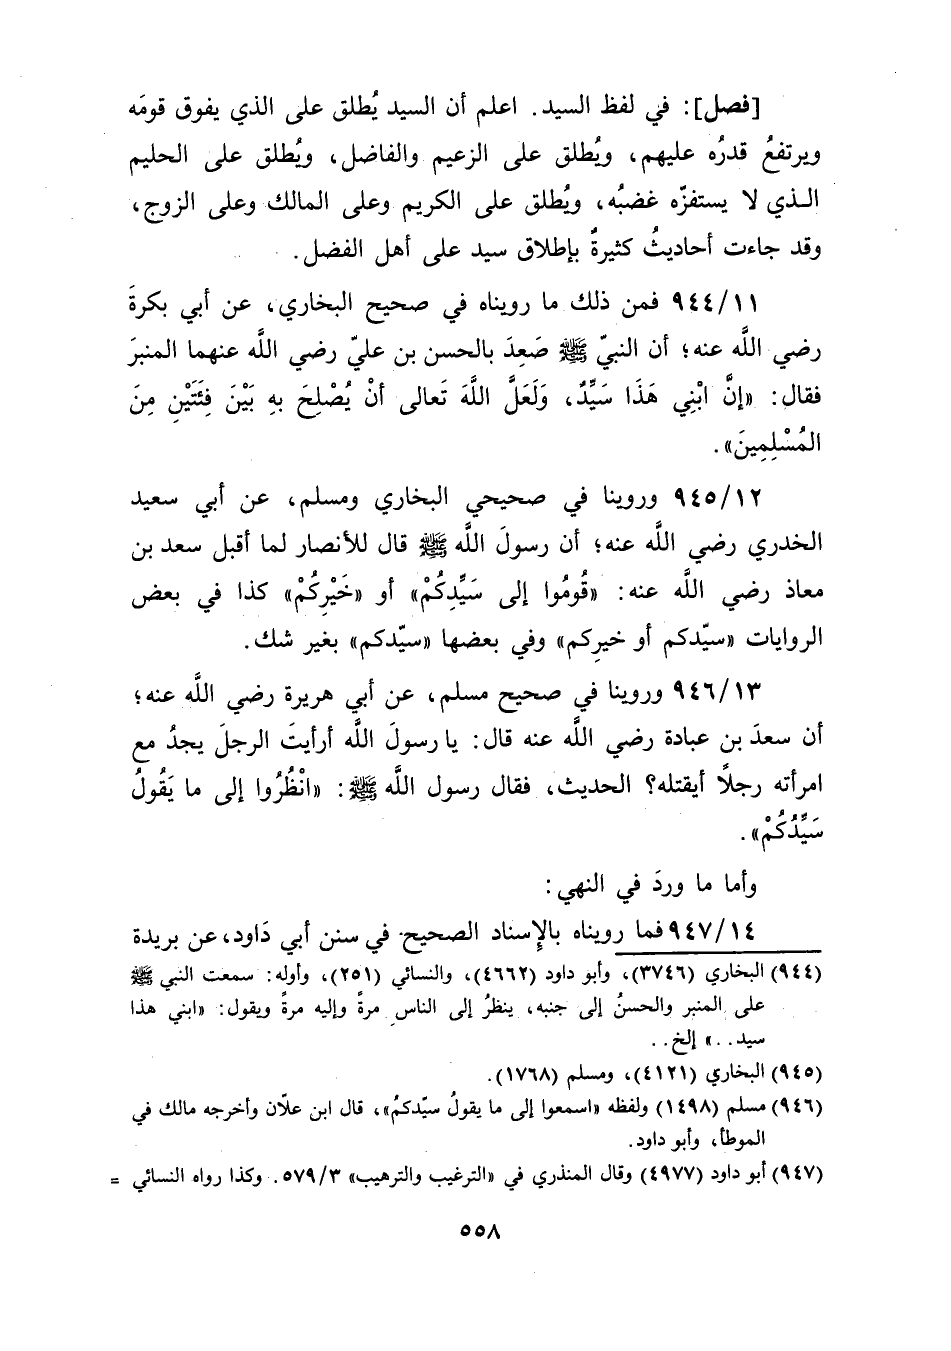 [فصل]: في لفظ السيد. اعلم أن السيد يُطلق على الذي يفوق قومَه
ويرتفعُ قدرُه عليهم، ويُطلق على الزعيم والفاضل، ويُطلق على الحليم
الذي لا يستفزّه غضبُه، ويُطلق على الكريم وعلى المالك وعلى الزوج،
وقد جاءت أحاديثُ كثيرةٌ بإطلاق سيد على أهل الفضل.
٩٤٤/١١ فمن ذلك ما رويناه في صحيح البخاري، عن أبي بكرةَ
رضي اللَّه عنه؛ أن النبيّ ﷺ صَعِدَ بالحسن بن عليّ رضي اللَّه عنهما المنبرَ
فقال: «إنَّ ابْنِي هَذَا سَيِّدٌ، وَلَعَلَّ اللَّهَ تَعالى أنْ يُصْلِحَ بِهِ بَيْنَ فِئَتَيْنِ مِنَ
المُسْلِمِينَ».
٩٤٥/١٢ وروينا في صحيحي البخاري ومسلم، عن أبي سعيد
الخدري رضي اللَّه عنه؛ أن رسولَ اللَّه ﷺ قال للأنصار لما أقبل سعد بن
معاذ رضي اللَّه عنه: «قُومُوا إلى سَيِّدِكُمْ» أو «خَيْرِكُمْ» كذا في بعض
الروايات «سيّدكم أو خيركم» وفي بعضها «سيّدكم» بغير شك.
٩٤٦/١٣ وروينا في صحيح مسلم، عن أبي هريرة رضي اللَّه عنه؛
أن سعدَ بن عبادة رضي اللَّه عنه قال: يا رسولَ اللَّه أرأيتَ الرجلَ يجدُ مع
امرأته رجلًا أيقتله؟ الحديث، فقال رسول اللَّه ﷺ: «انْظُرُوا إلى ما يَقُولُ
سَيِّدُكُمْ».
وأما ما وردَ في النهي:
٩٤٧/١٤ فما رويناه بالإِسناد الصحيح في سنن أبي دَاود، عن بريدة
(٩٤٤) البخاري (٣٧٤٦)، وأبو داود (٤٦٦٢)، والنسائي (٢٥١)، وأوله: سمعت النبي ﷺ
على المنبر والحسنُ إلى جنبه، ينظرُ إلى الناس مرةً وإليه مرةً ويقول: «ابني هذا
سيد..» إلخ..
(٩٤٥) البخاري (٤١٢١)، ومسلم (١٧٦٨).
(٩٤٦) مسلم (١٤٩٨) ولفظه «اسمعوا إلى ما يقولُ سيّدكمُ»، قال ابن علّان وأخرجه مالك في
الموطأ، وأبو داود.
(٩٤٧) أبو داود (٤٩٧٧) وقال المنذري في «الترغيب والترهيب» ٥٧٩/٣. وكذا رواه النسائي =
٥٥٨